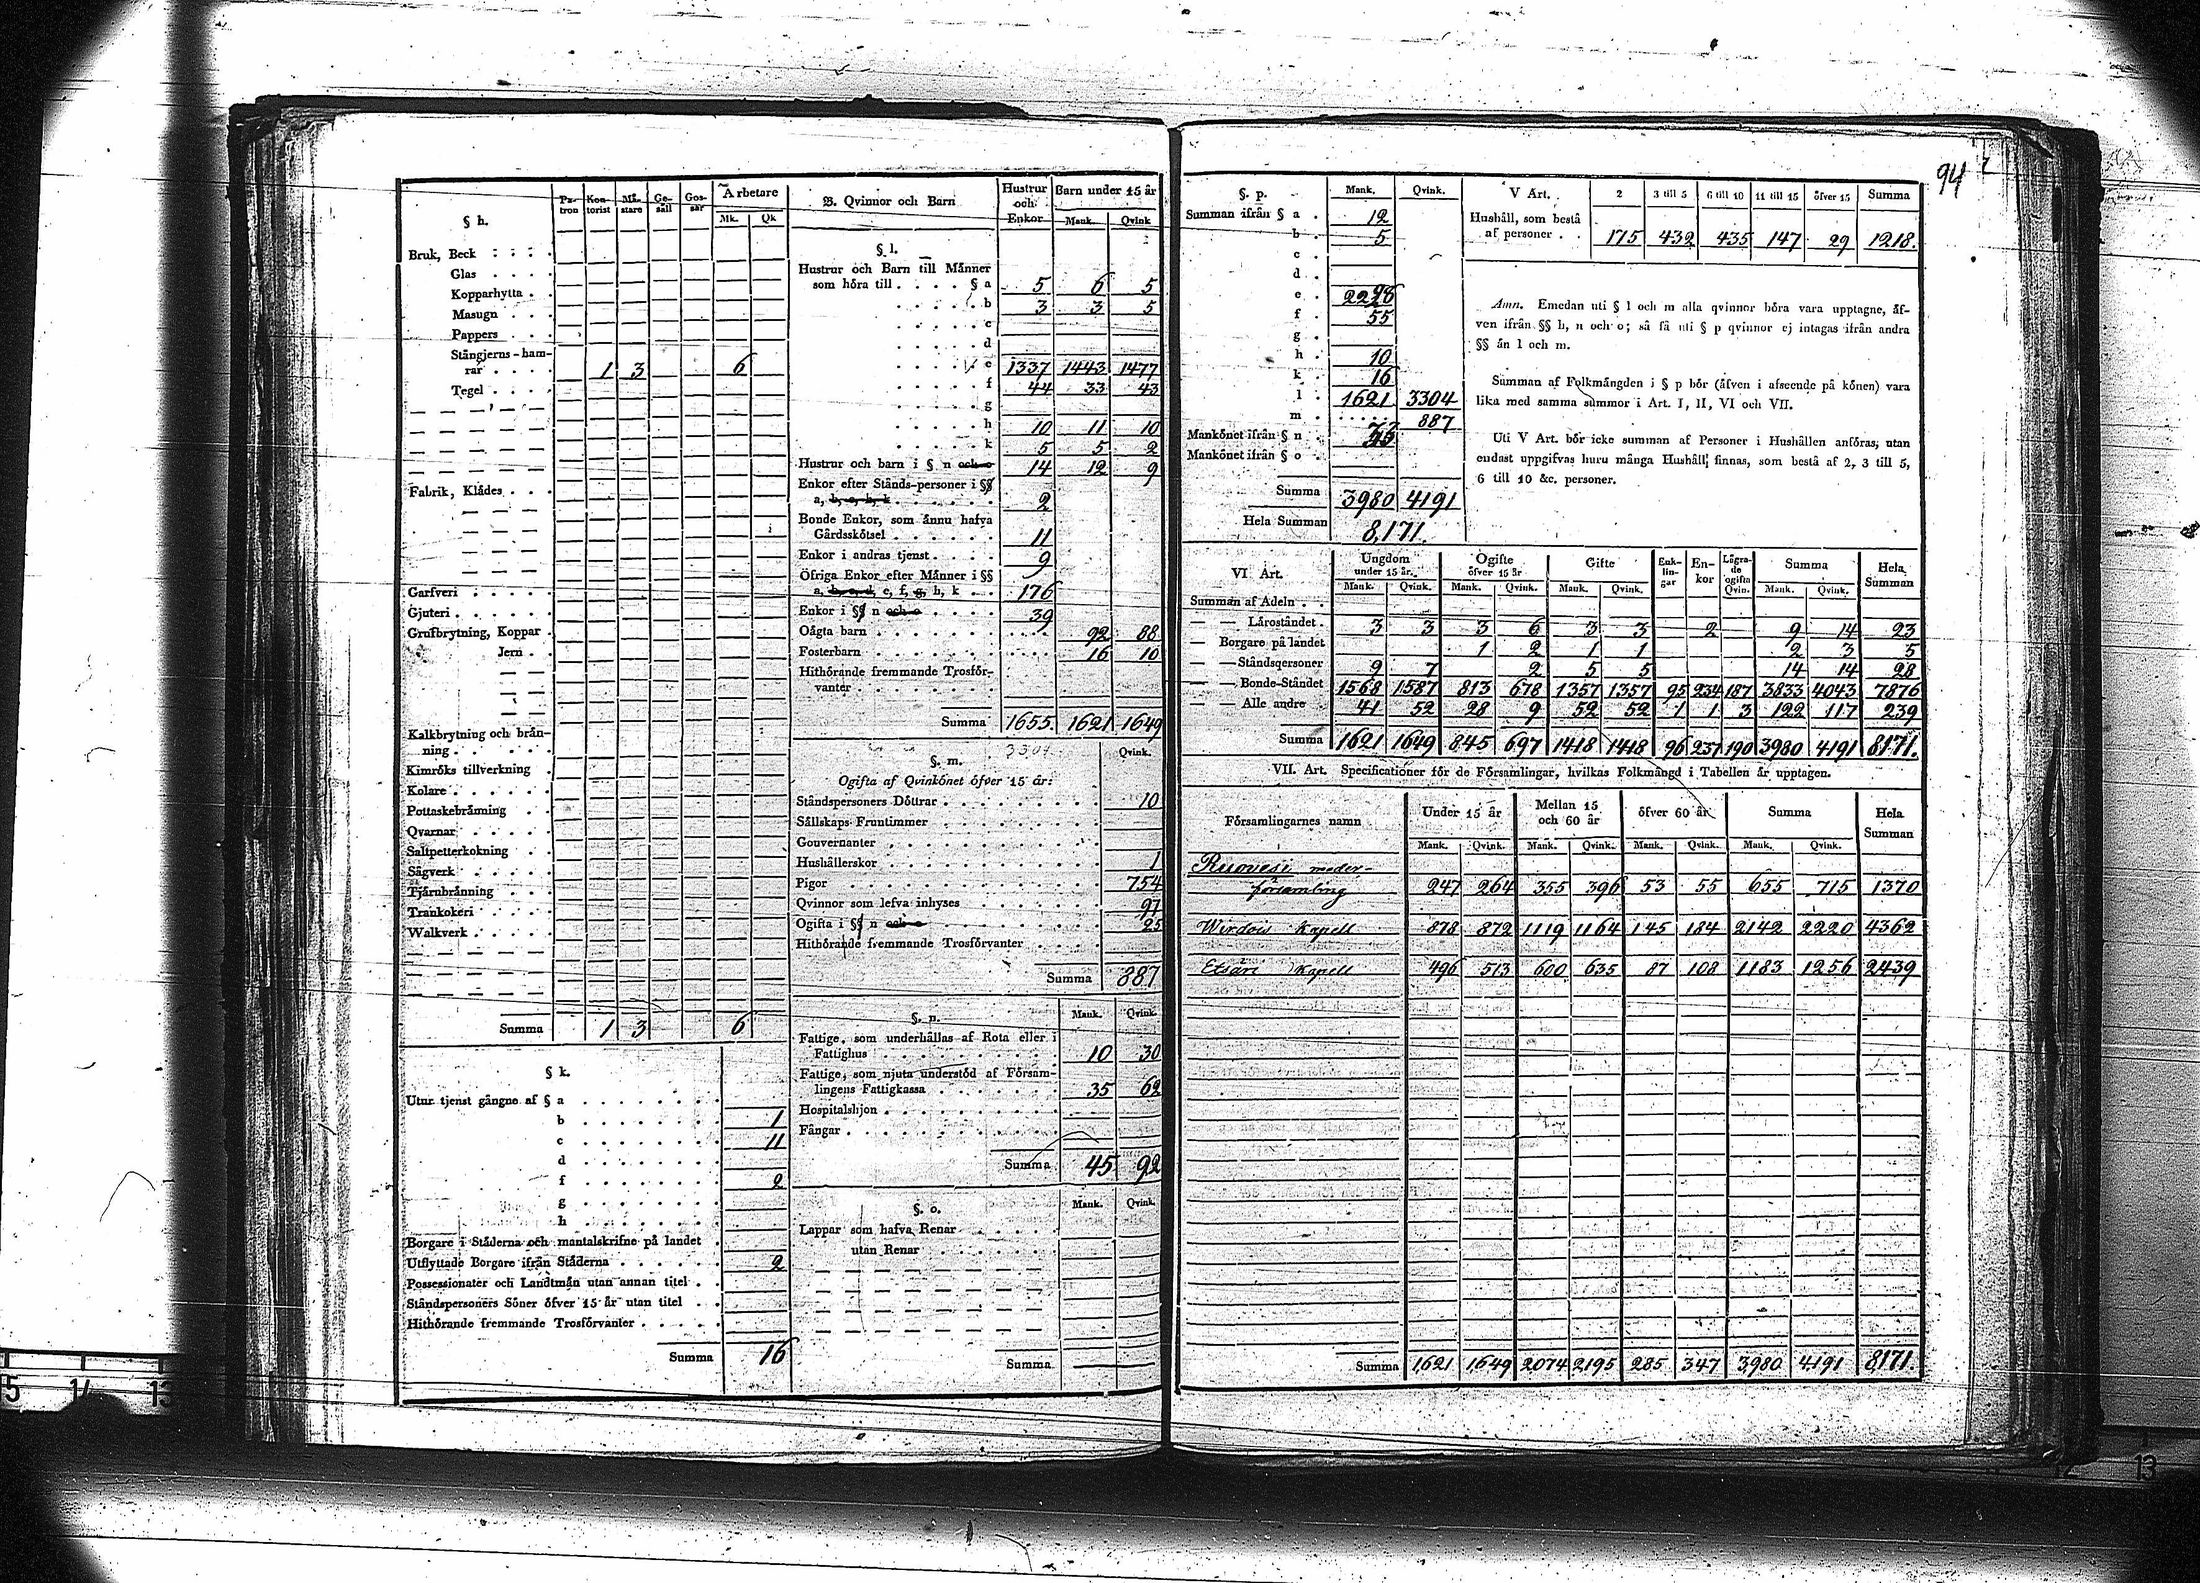 94
§ h.
Pa-tron Kon-torist Mä-stare Ge-säll Gos-sar Arbetare
Mk. Qk
Bruk, Beck
Glas
Kopparhytta
Masugn
Pappers
Stångjerns-ham-
rar 1 3 6
Tegel
Fabrik, Klådes
Garfveri
Gjuteri
Grufbrytning, Koppar
Jern
Kalkbrytning och brän-
ning
Kimröks tillverkning
Kolare
Pottaskebränning
Qvarnar
Saltpetterkokning
Sågverk
Tjärubränning
Trankokeri
Walkverk
Summa 1 3 6
§ k.
Utur tjenst gångne af § a
b 1
c 11
d
f 2
g
h
Borgare i Städerna och mantalskrifne på landet
Utflyttade Borgare ifrån Städerna 2
Possessionater och Landtmän utan annan titel
Ståndspersoners Söner öfver 15 år utan titel
Hithörande fremmande Trosförvanter
Summa 16
B. Qvinnor och Barn
Hustrur och Enkor Barn under 15 år
Mank. Qvink
§ l.
Hustrur och Barn till Männer
som höra till § a 5 6 5
b 3 3 5
c
d
e 1337 1443 1477
f 44 33 43
g
h 10 11 10
k 5 5 2
Hustrur och barn i § n och o 14 12 9
Enkor efter Stånds-personer i §§
a, b, c, h, k 2
Bonde Enkor, som ännu hafva
Gårdsskötsel 11
Enkor i andras tjenst 9
Öfriga Enkor efter Männer i §§
a, b, c, d, e, f, g, h, k 176
Enkor i §§ n och o 39
Oägta barn 92 88
Fosterbarn 16 10
Hithörande fremmande Trosför-
vanter
Summa 1655 1621 1649
§. m. Qvink.
Ogifta af Qvinkönet öfver 15 år:
Ståndspersoners Döttrar 10
Sällskaps Fruntimmer
Gouvernanter
Hushållerskor 1
Pigor 754
Qvinnor som lefva inhyses 97
Ogifta i §§ n och o 25
Hithörande fremmande Trosförvanter
Summa 887
§. n. Mank. Qvink.
Fattige, som underhållas af Rota eller i
Fattighus 10 30
Fattige, som njuta understöd af Försam-
lingens Fattigkassa 35 62
Hospitalshjon
Fångar
Summa 45 92
§. o. Mank. Qvink.
Lappar som hafva Renar
utan Renar
Summa
§. p. Mank. Qvink.
Summan ifrån § a 12
b 5
c
d
e
f 55
g
h 10
k 16
l 1621 3304
m 887
Mankönet ifrån § n
Mankönet ifrån § o
Summa 3980 4191
Hela Summan 8,171.
V Art. 2 3 till 5 6 till 10 11 till 15 öfver 15 Summa
Hushåll, som bestå
af personer 175 432 435 147 29 1218.
Anm. Emedan uti § l och m alla qvinnor böra vara upptagne, äf-
ven ifrån §§ h, n och o; så få uti § p qvinnor ej intagas ifrån andra
§§ än l och m.
Summan af Folkmängden i § p bör (äfven i afseende på könen) vara
lika med samma summor i Art. I, II, VI och VII.
Uti V Art. bör icke summan af Personer i Hushållen anföras, utan
endast uppgifvas huru många Hushåll finnas, som bestå af 2, 3 till 5,
6 till 10 &c. personer.
VI Art. Ungdom under 15 år. Ogifte öfver 15 år Gifte Enk-lin-gar En-kor Lägra-de ogifta Qvin. Summa Hela Summan
Mank. Qvink. Mank. Qvink. Mank. Qvink. Mank. Qvink.
Summan af Adeln
— — Läroståndet 3 3 3 6 3 3 2 9 14 23
— Borgare på landet 1 2 1 1 2 3 5
— — Ståndspersoner 9 7 2 5 5 14 14 28
— — Bonde-Ståndet 1568 1587 813 678 1357 1357 95 234 187 3833 4043 7876
— — Alle andre 41 52 28 9 52 52 1 1 3 122 117 239
Summa 1621 1649 845 697 1418 1418 96 237 190 3980 4191 8171.
VII. Art. Specificationer för de Församlingar, hvilkas Folkmängd i Tabellen är upptagen.
Församlingarnes namn Under 15 år Mellan 15 och 60 år öfver 60 år Summa Hela Summan
Mank. Qvink. Mank. Qvink. Mank. Qvink. Mank. Qvink.
Ruovesi moder-
församling 247 264 355 396 53 55 655 715 1370
Wirdois Kapell 878 872 1119 1164 145 184 2142 2220 4362
Etsäri Kapell 496 513 600 635 87 108 1183 1256 2439
Summa 1621 1649 2074 2195 285 347 3980 4191 8171.
15 14 13
12 13